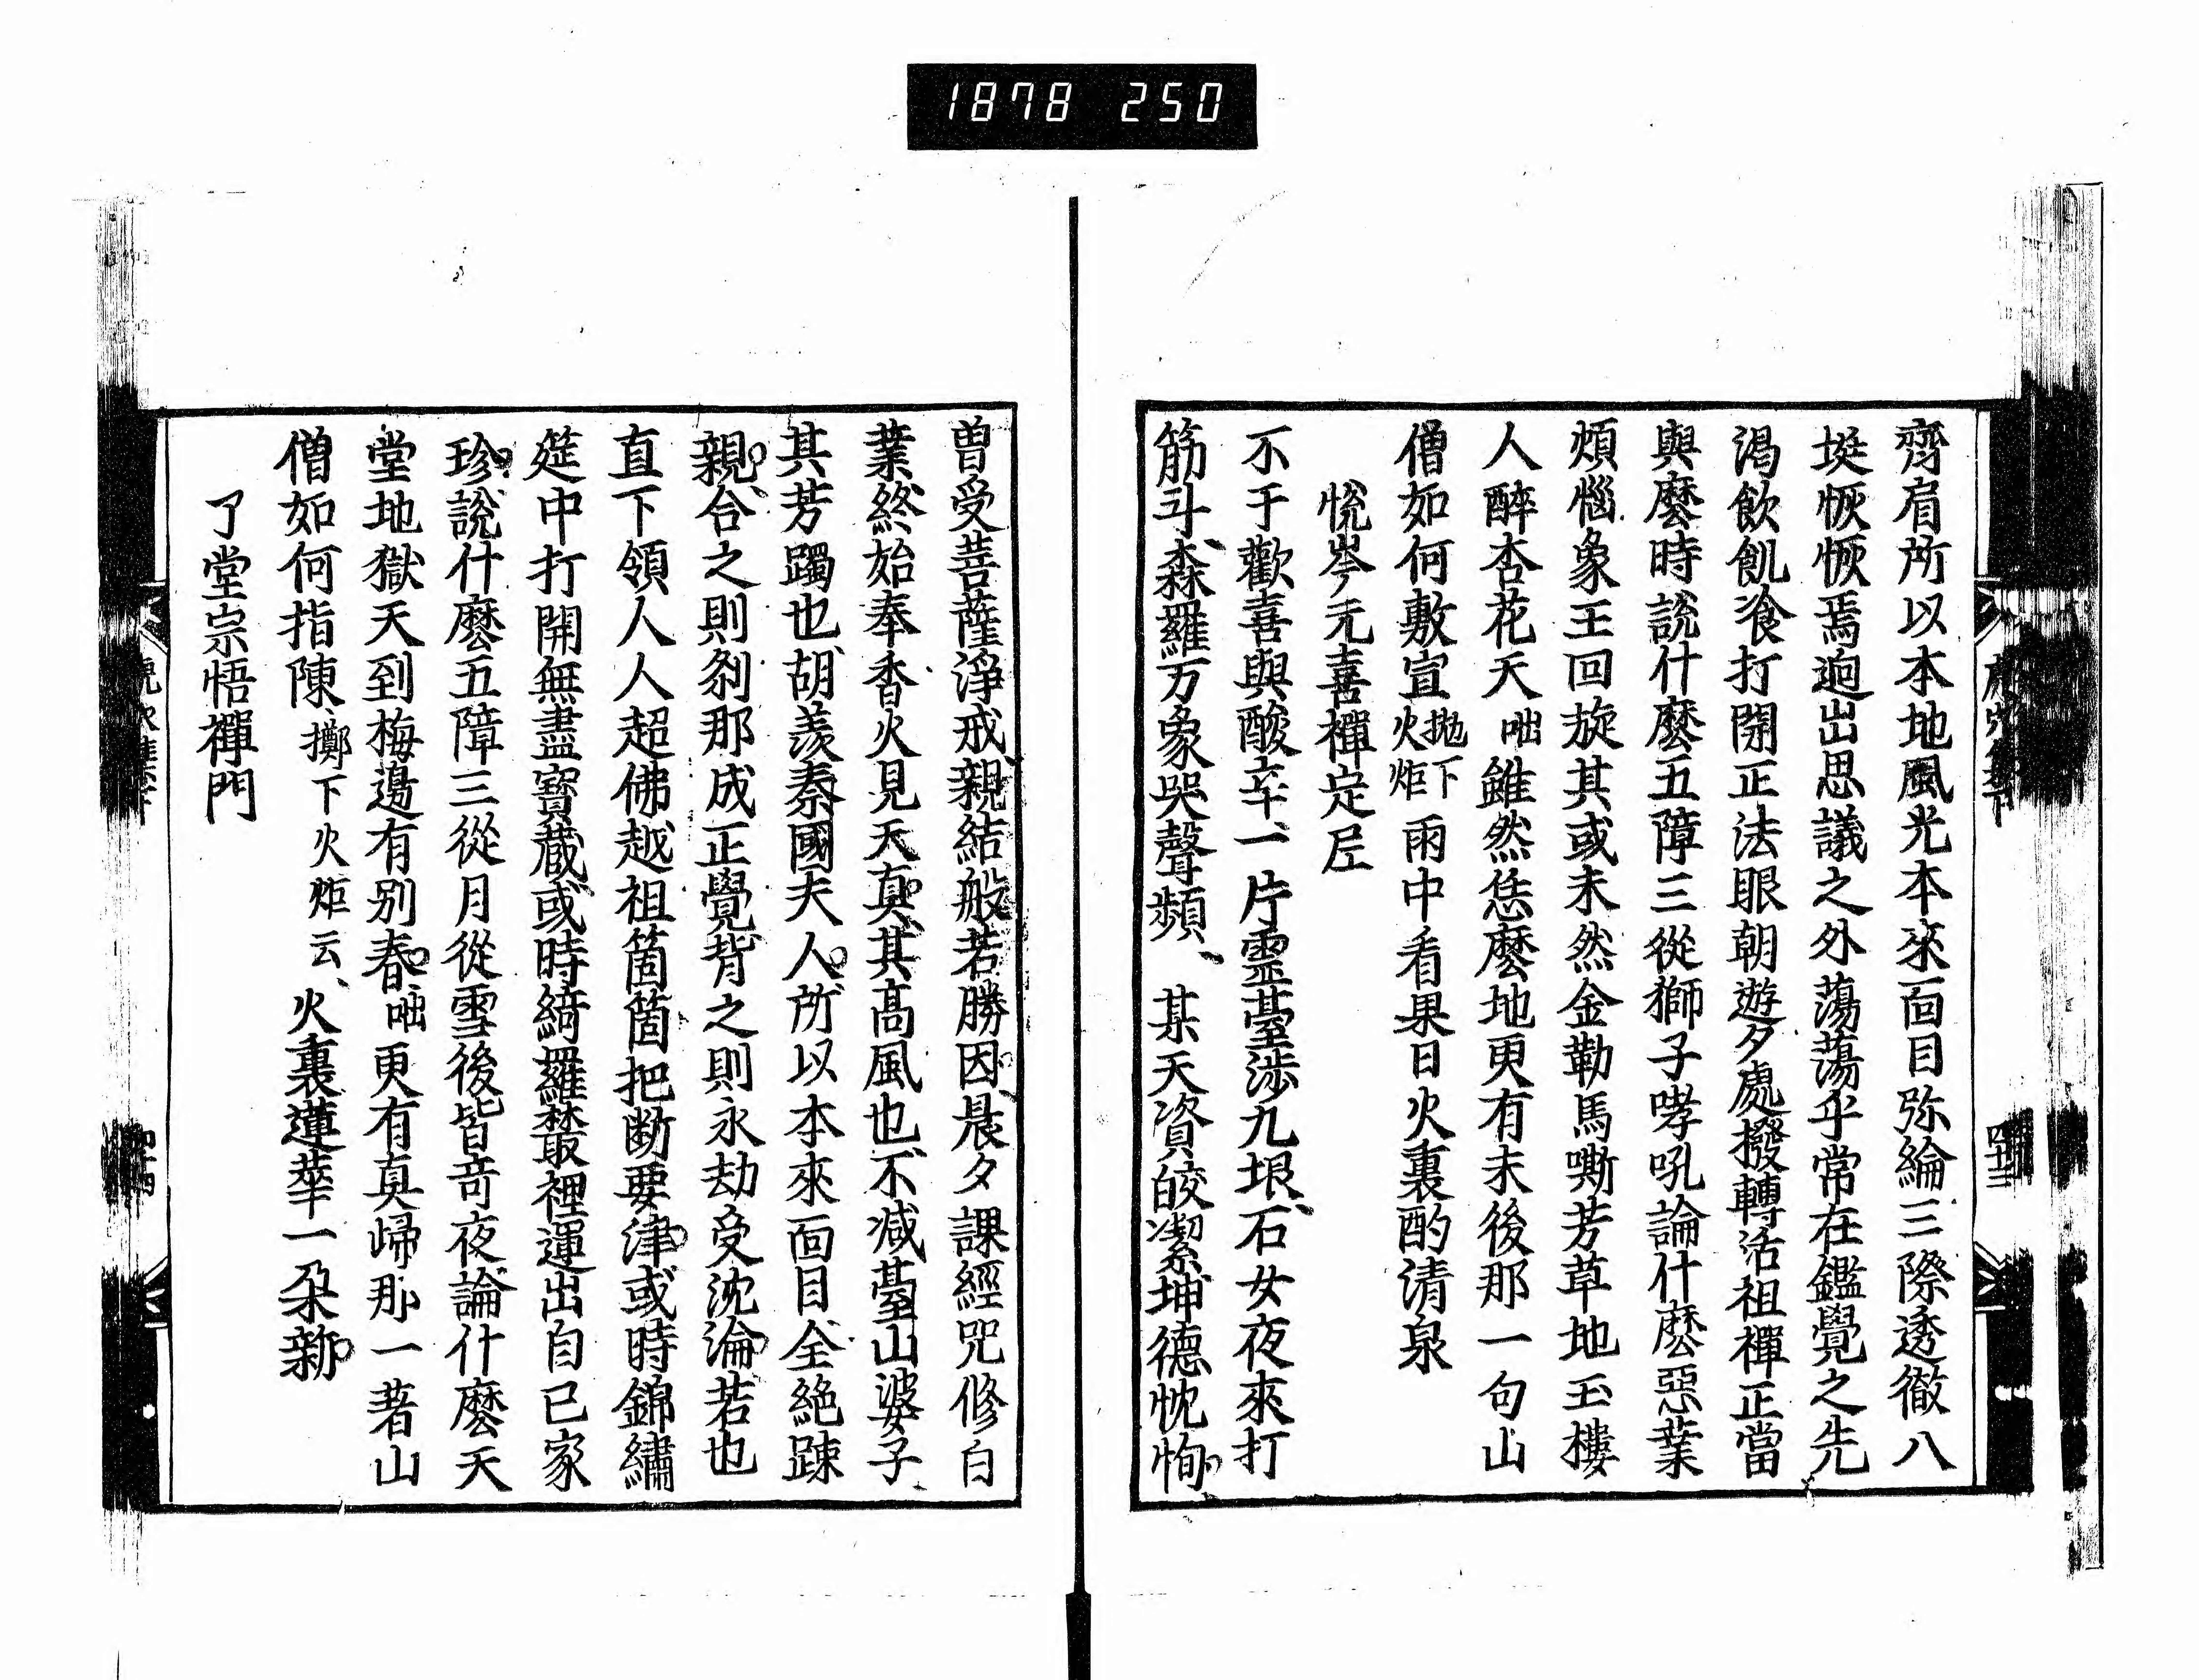 1878 250
齊肩所以本地風光本來面目弥綸三際透徹八
埏恢恢焉逈出思議之外蕩蕩乎常在鑑覺之先
渇飲飢飡打開正法眼朝遊夕處撥轉活祖禪正當
與麼時說什麼五障三從獅子哮吼論什麼惡業
煩惱象王回旋其或未然金勒馬嘶芳草地玉樓
人醉杏花天咄雖然恁麼地更有末後那一句山
僧如何敷宣拋下火炬雨中看果日火裏酌清泉
恱岑无喜禪定尼
不于歡喜與酸辛、一片靈臺涉九垠、石女夜來打
筋斗、森羅万象哭聲頻、某天資皎潔坤德忱恂
曽受菩薩淨戒親結般若勝因晨夕課經咒修白
業終始奉香火見天真其高風也不減臺山婆子
其芳躅也胡羨秦國夫人所以本來面目全絕踈
親合之則刹那成正覺背之則永劫受沈淪若也
直下領人人超佛越祖箇箇把断要津或時錦繡
筵中打開無盡寶藏或時綺羅叢裡運出自己家
珍說什麼五障三從月從雪後皆竒夜論什麼天
堂地獄天到梅邊有別春咄更有真歸那一著山
僧如何指陳擲下火炬云、火裏蓮華一朶新
了堂宗悟禪門